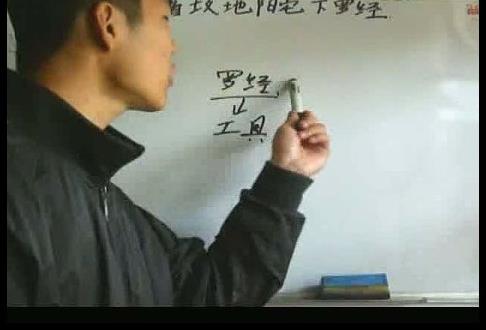 坟地阳宅下罗经
罗经
工具